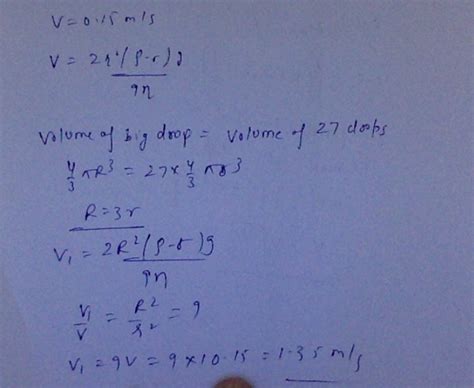 V = 0.15 m/s
V = 2r²(ρ-σ)g / 9η
Volume of big drop = Volume of 27 drops
4/3 πR³ = 27 × 4/3 πr³
R = 3r
V₁ = 2R²(ρ-σ)g / 9η
V₁/V = R²/r² = 9
V₁ = 9V = 9 × 10.15 = 1.35 m/s